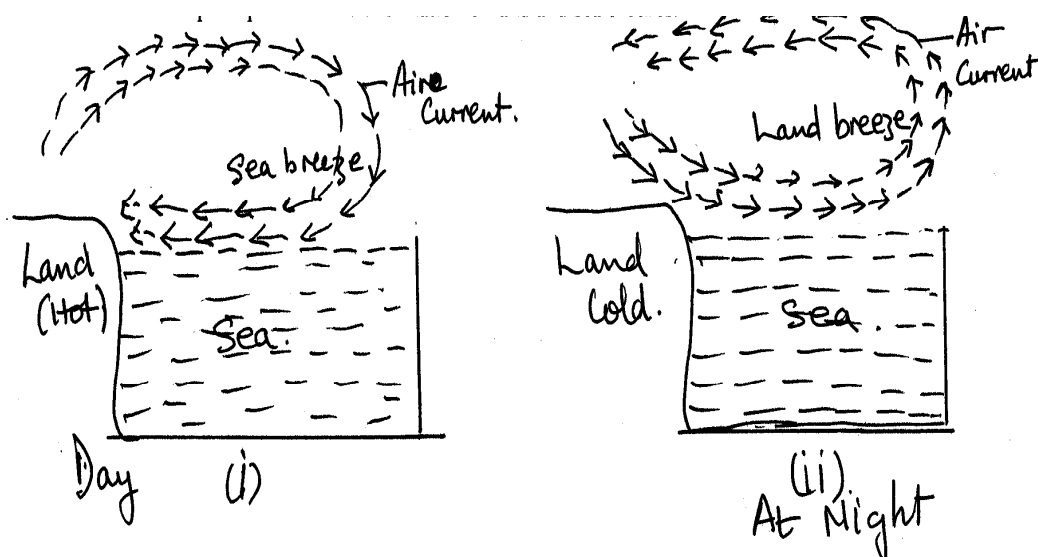 Aire
Current.
Sea breeze
Land
(Hot)
Sea.
Day
(i)
Air
Current
Land breeze
Land
Cold.
Sea.
(ii)
At Night